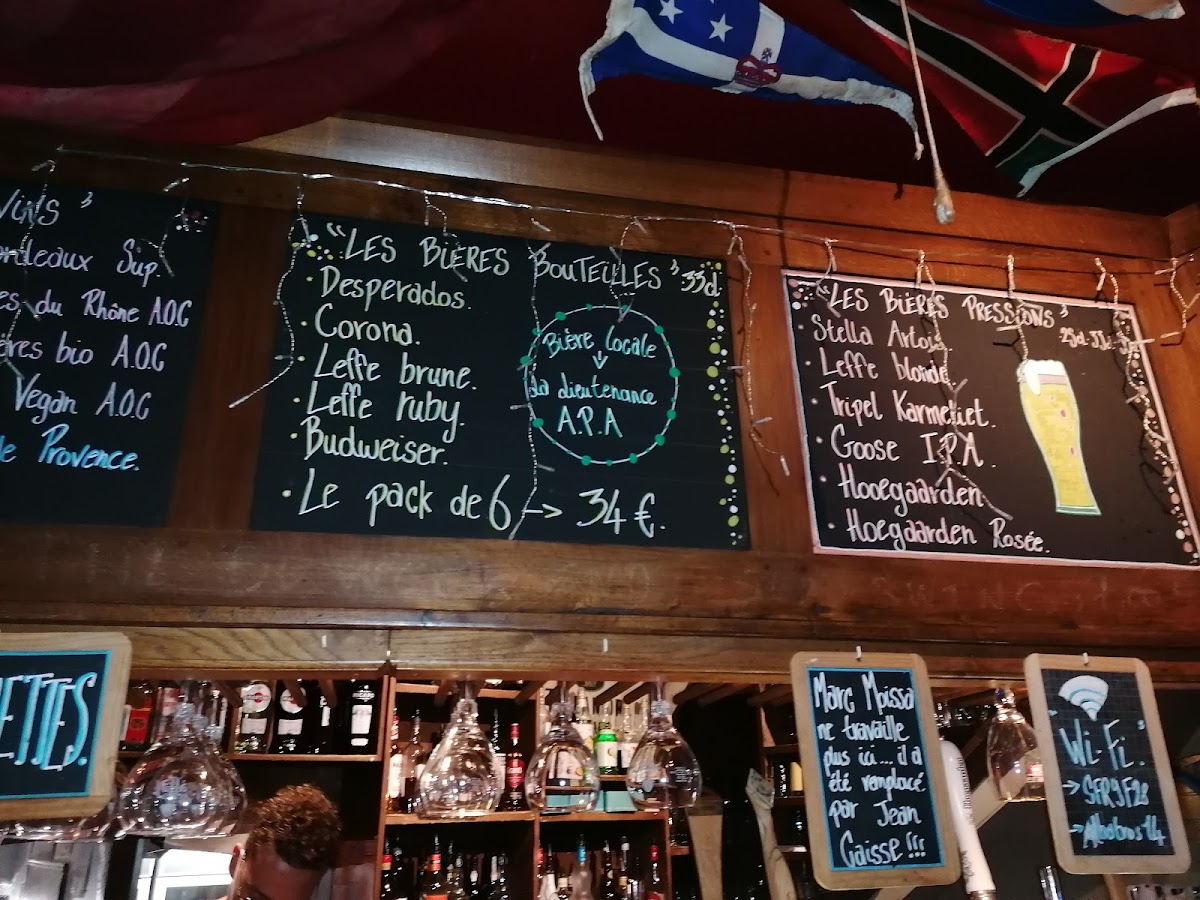 VINS"
Sup.
du Rhône A.O.C
bio A.O.C
Vegan A.O.C
de Provence.
"LES BIÈRES BOUTEILLES" 33cl.
Desperados.
Corona.
Leffe brune.
Leffe ruby.
Budweiser.
Bière locale
La dieutenance
A.P.A
Le pack de 6 → 34 €.
"LES BIÈRES PRESSIONS"
25cl-33cl-
Stella Artois
Leffe blonde
Tripel Karmeliet.
Goose I.P.A.
Hooegaarden
Hoegaarden Rosée.
ETTES.
Marc Moissa
ne travaille
plus ici... il a
été remplacé
par Jean
Caisse !!!
"Wi-Fi"